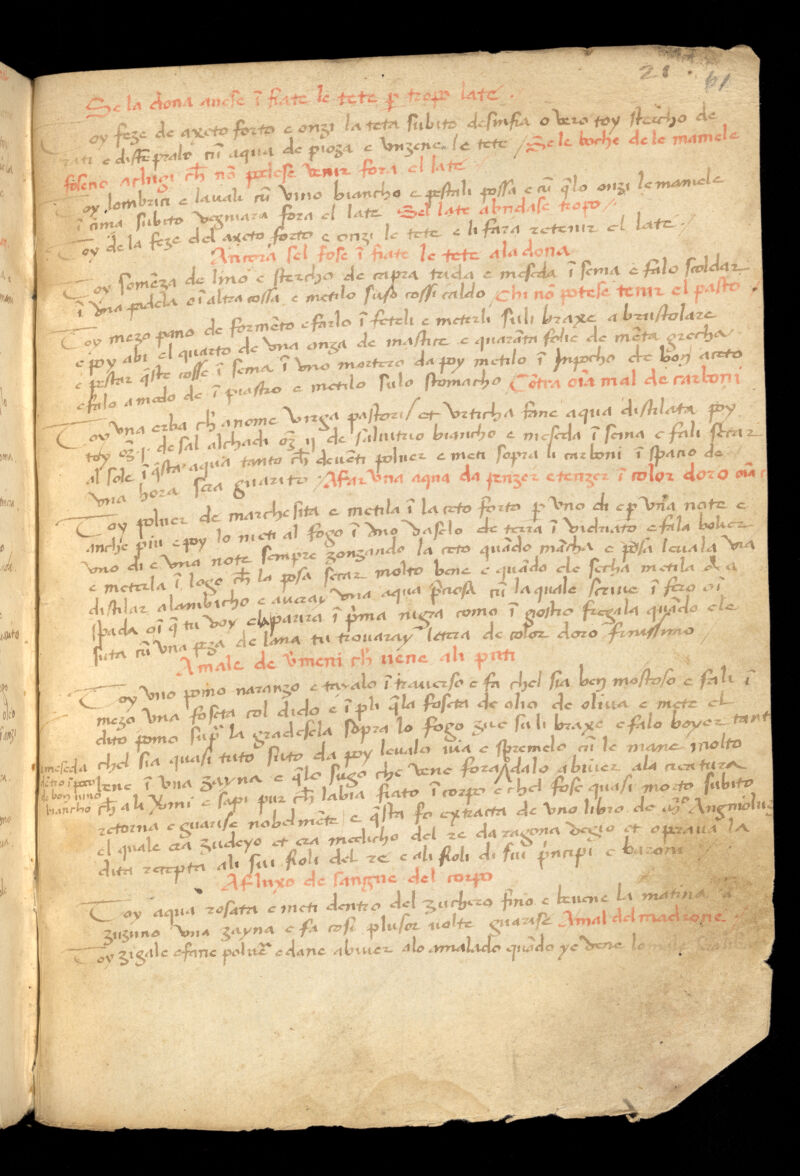 21 · 61
Se la dona avese ĩ fiate le tete p̱ tropo late ·
Toy feze de axeto forto e onzi la teta subito desinfia o vero toy stercho de
rati e distẽpralo cũ aqua de pioza e vnzene le tete / Se le boche de le mamele
foseno achigi ch̃ nõ potese venir fora el late
Toy lombrici e lavali cũ vino biancho e pestali possa e cũ q̃lo onzi le mamele
ĩ cima subito vegniara fora el late Sel late abũdase tropo /
Toy de la feze del axeto forto e onzi le tete e li fara retenir el late ·
Ancora sel fose ĩ fiate le tete ala dona
Toy somẽza de lino e stercho de capra trida e meseda ĩ sema e falo scoldar
ĩ vna padela o ĩ altra cossa e metilo suso cossi caldo Chi nõ potese tenir el pasto
Toy mezo pane de formẽto e farlo ĩ feteli e meterli suli braxe a brustolare
e poy abi el quarto de vna onza de mastice e quarãta folie de mẽta grecha
e pestar q̃ste cosse ĩ sema ĩ vno mortero da poy metilo ĩ vnpocho de bon aceto
e falo a modo de ĩ piastro e metilo sulo stomacho Cõtra oĩa mal de carboni
Toy vna erba ch̃ a nome virga pastoris et vrticha fane aqua distilata poy
toy oz̃ · j · de sal alchadi oz̃ ij de salnitrio biancho e meseda ĩ sema e fali secar
al sole ĩ q̃sta aqua tanto ch̃ devẽti polver e meti sopra li carboni ĩ spacio de
vna hora sera guarito / A far vna aqua da penzer e tenzer ĩ color doro
Toy polver de marchesita e metila ĩ laceto forto p̱ vno di e p̱ vña note e
anche piu e poy lo meti al fogo ĩ vno vaselo de terra ĩ vidriato e fala boler
vno di e vna note sempre zonzando la ceto quãdo mãcha e posa levala via
e meterla ĩ logo ch̃ la posa secar molto bene e quãdo ele secha metila a
distilar alambicho e averay vna aqua p̃ciosa cũ la quale scrive ĩ fero oĩ
spada oĩ q̃ tu voy e la parira ĩ p̃ma nigra como ĩ gostro fregala quãdo ele
suta cũ vna peza de lana tu trovaray letera de color doro finissimo /
A male de v̾meni ch̃ vene ali puti
Toy vno pomo naranzo e tayalo ĩ traverso e fa chel sia ben mostoso e fali ĩ
mezo vna foseta col dido e ĩpli q̃la foseta de olio de oliva e mete el
dito pomo sup̱ la gradesela sopra lo fogo zue suli braxe e falo boyer tant
chel sia quasi tuto suto da poy levalo via e spremelo cũ le mane molto
bene ĩ vna zayna e q̃lo sugo che vene fora dalo abiver ala creatura
ch̃ a li v̾mi e sapi pur ch̃ labia fiato ĩ corpo e chel fose quasi morto subito
retorna e guarise nobelmẽte e q̃sta fo extracta de vno libro de m̃ro Angniolus
el quale era zudeyo et era medicho del re daragona degio et operava la
dita recepta ali sui fioli del re e ali fioli di sui p̃ncipi e baroni
e meseda
dẽtro ĩ poco
de bon vino
biancho
A fluxo de sangue del corpo
Toy aqua rosata e meti dentro del zuchero fino e bevene la matina a
zizuno vna zayna e fa cosi plusor volte guarise A mal del madrone
Toy zigale e fane polver̃ e dane abiver alo amalado quãdo ye vene lo male